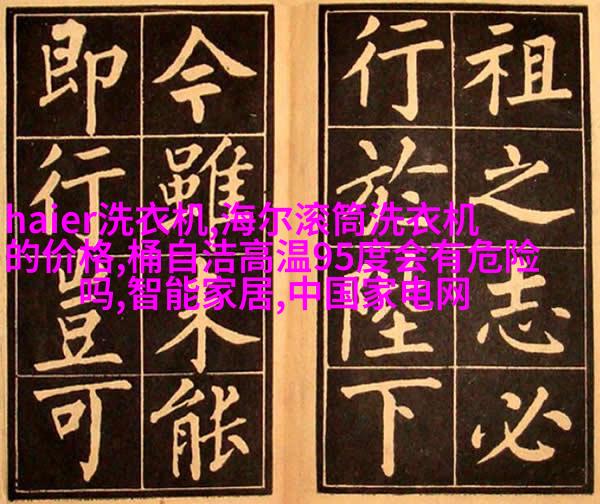 祖之志必
行於陛下
今雖未能
即行豈可
haier洗衣机,海尔滚筒洗衣机
的价格,桶自洁高温95度会有危险
吗,智能家居,中国家电网